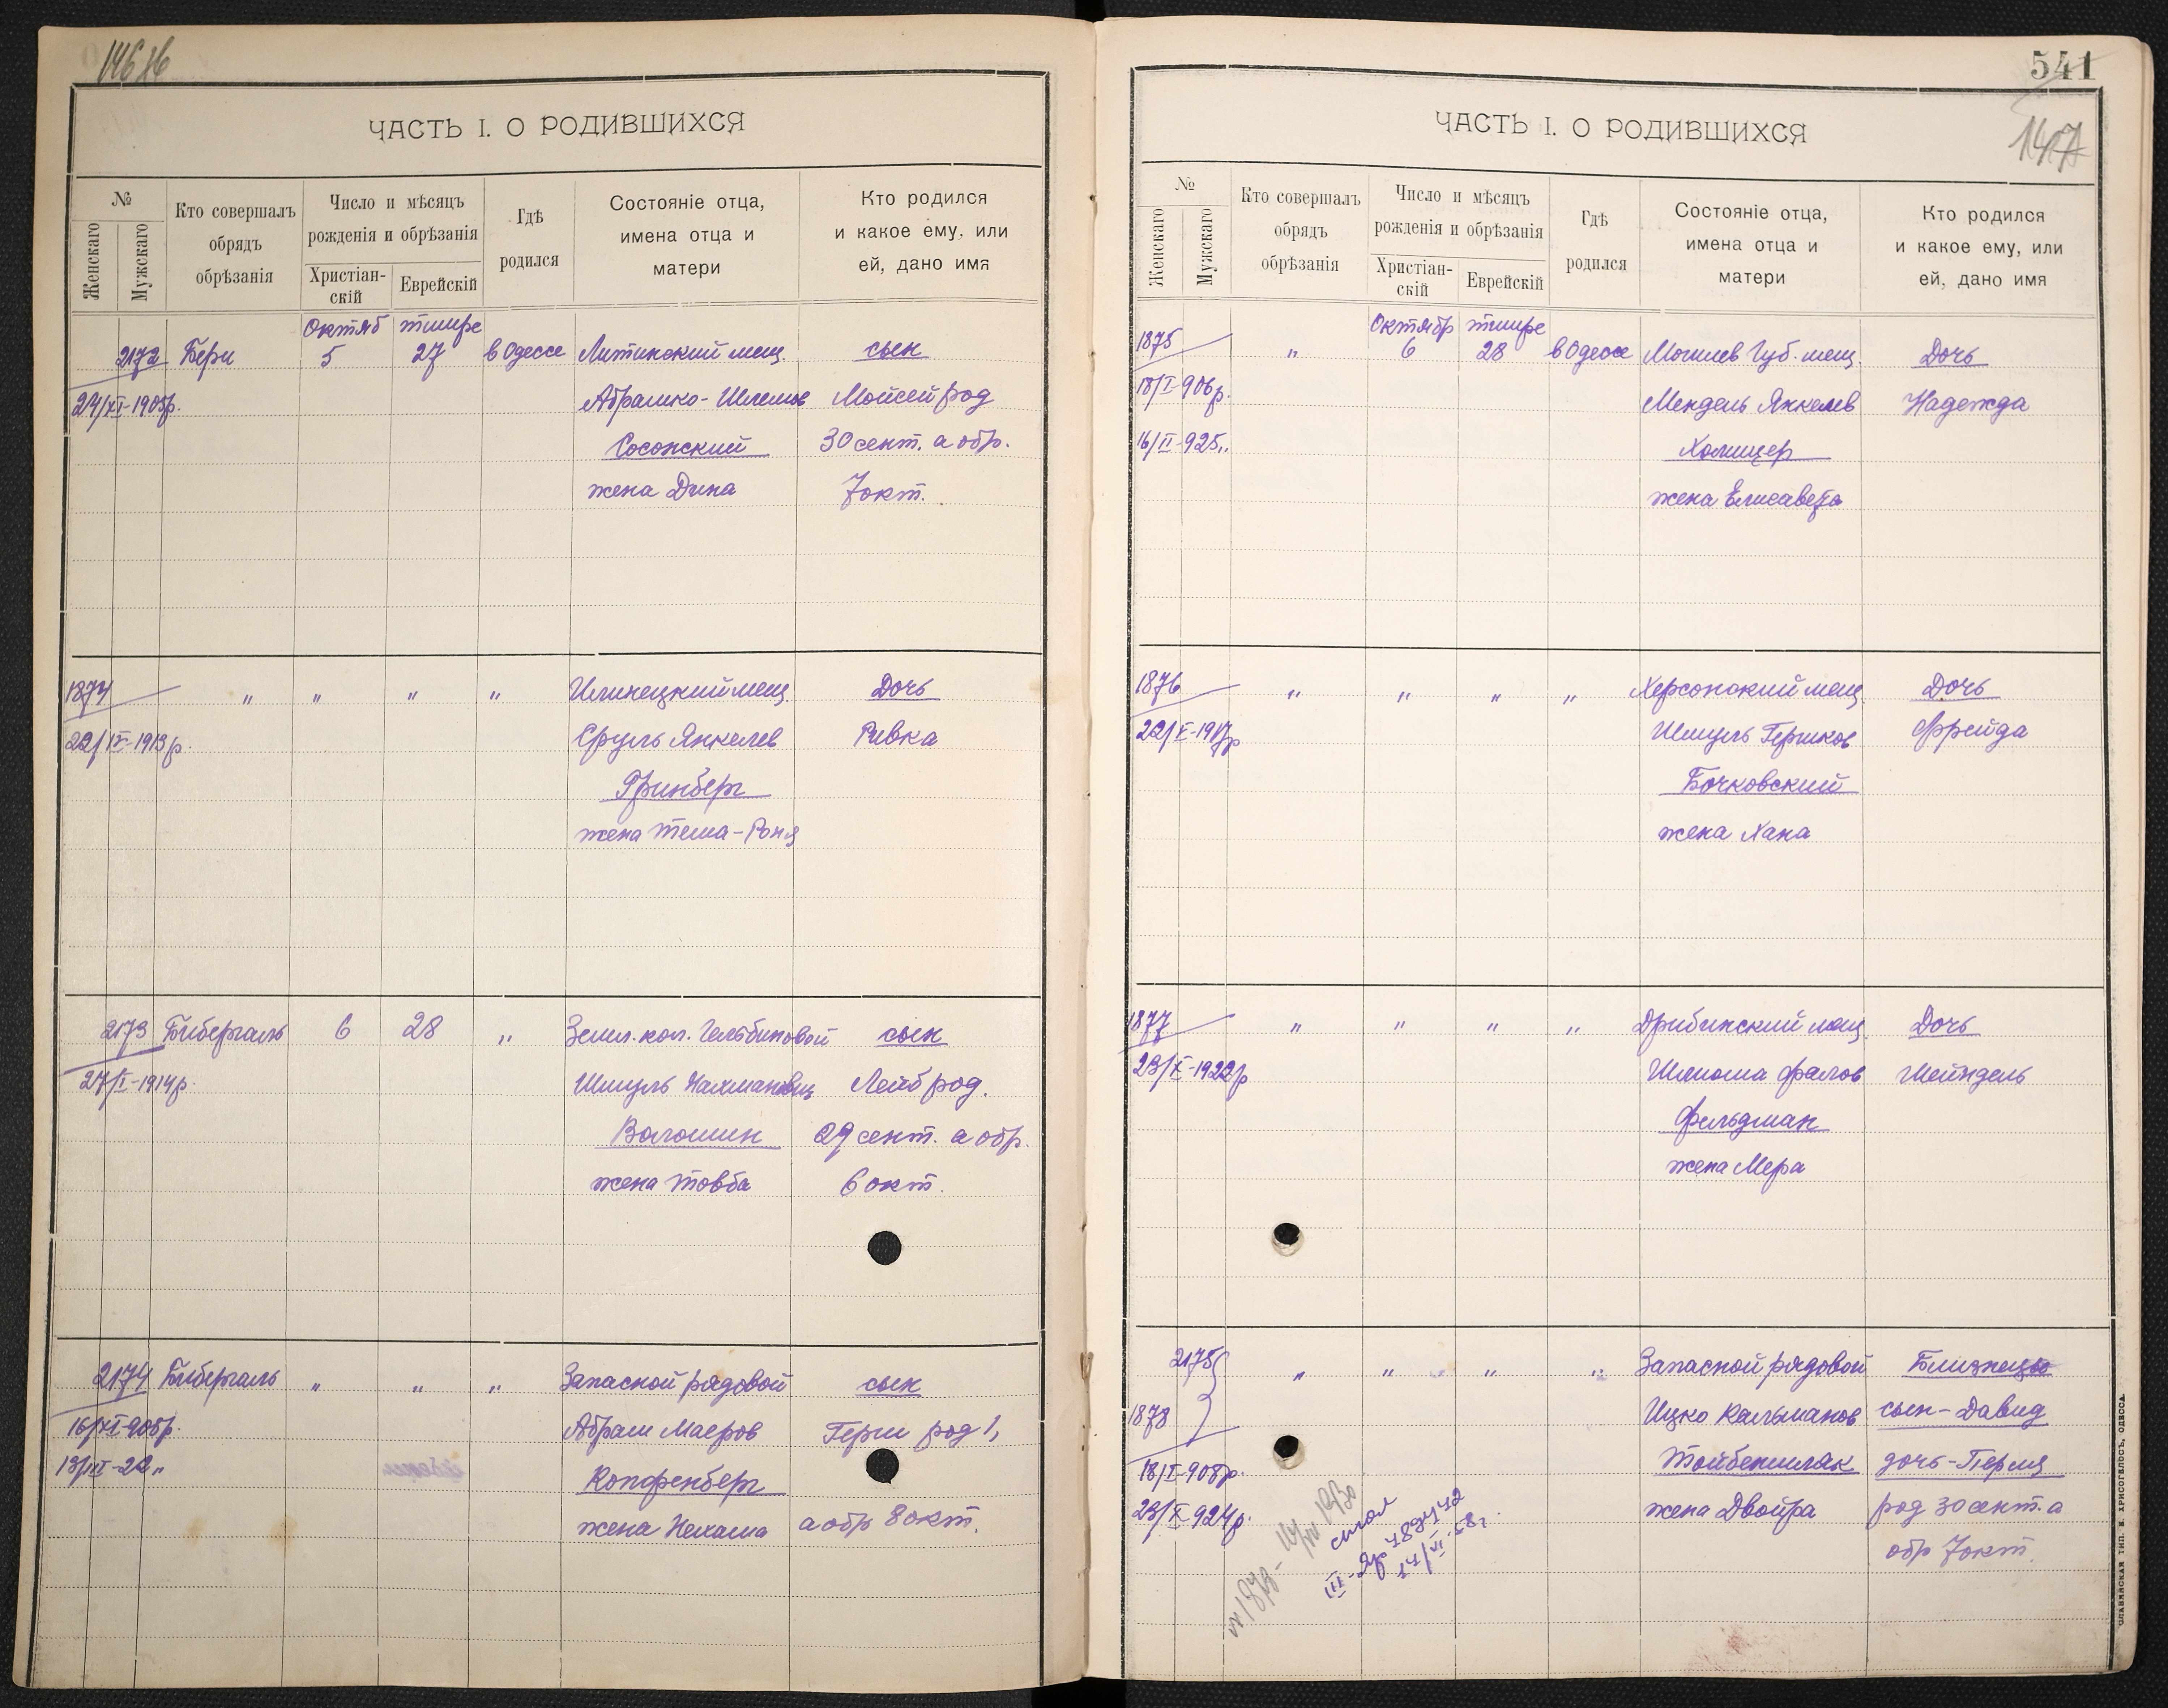 ЧАСТЬ I. О РОДИВШИХСЯ
№
Женскаго
Мужскаго
Кто совершалъ
обрядъ
обрѣзанія
Число и мѣсяцъ
рожденія и обрѣзанія
Христіан-
скій
Еврейскій
Гдѣ
родился
Состояніе отца,
имена отца и
матери
Кто родился
и какое ему, или
ей, дано имя
Октяб тишре
2172 Бери 5 27 в Одессе Литинский мещ. сын
24/XI-1905р. Абрамко-Шлемов Мойсей род
Сосонский 30 сент. а обр.
жена Дина 7 окт.
1874 " " " " Илинецкий мещ. Дочь
22/IX-1913р. Сруль Янкелев Ривка
Гринберг
жена Теша-Роня
2173 Бибергаль 6 28 " Земл. кол. сын
27/I-1914р. Шмуль Нахманович Лейб род.
Волошин 29 сент. а обр.
жена Товба 6 окт.
2174 Бибергаль " " " Запасной рядовой сын
16/XI-905р. Абрам Маеров Герш род 1,
13/III-22 " Копфенберг
жена Нехама а обр 8 окт.
541
147
ЧАСТЬ I. О РОДИВШИХСЯ
№
Женскаго
Мужскаго
Кто совершалъ
обрядъ
обрѣзанія
Число и мѣсяцъ
рожденія и обрѣзанія
Христіан-
скій
Еврейскій
Гдѣ
родился
Состояніе отца,
имена отца и
матери
Кто родился
и какое ему, или
ей, дано имя
Октябр тишре
1875 " 6 28 в Одессе Могилев Губ. мещ. Дочь
18/I-906р. Мендель Янкелев Надежда
16/II-925 " Холищер
жена Елисавета
1876 " " " " Херсонский мещ. Дочь
22/V-1917р Шмуль Гершков Фрейда
Бочковский
жена Хана
1877 " " " " Дрибинский мещ. Дочь
23/X-1922р Шлиома Фалов Шейндель
Фельдман
жена Мера
2175 " " " " Запасной рядовой Близнецы
1878 Ицко Кальманов сын-Давид
18/I-908р. Тойбеншлак дочь-Перля
23/X-924р. жена Двойра род 30 сент. а
обр 7 окт.
14/VI-58г.
СЛАВЯНСКАЯ ТИП. Н. ХРИСОГЕЛОСЪ, ОДЕССА.